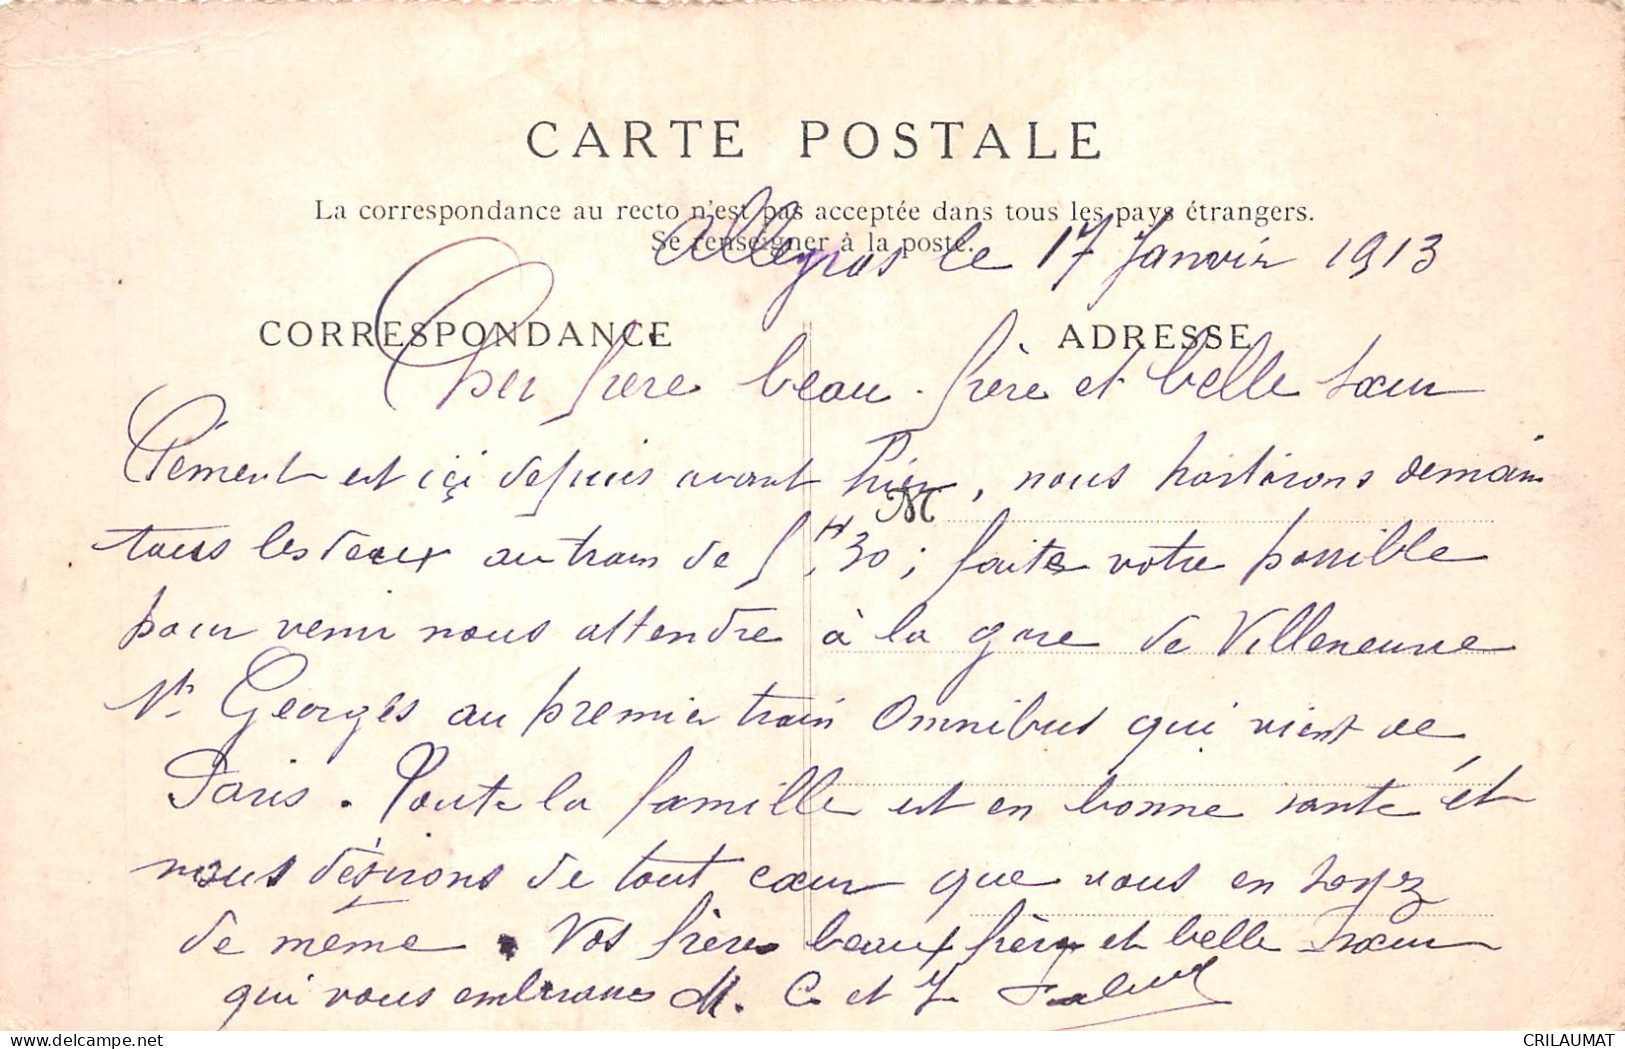 CARTE POSTALE
La correspondance au recto n'est pas acceptée dans tous les pays étrangers.
Se renseigner à la poste.
le 17 Janvier 1913
CORRESPONDANCE
ADRESSE
Cher frère beau-frère et belle sœur
Clément est içi depuis avant hier, nous partirons demain
M
tous les deux au train de 5H,30; faites votre possible
pour venir nous attendre à la gare de Villeneuve
St. Georges au premier train Omnibus qui vient de
Paris. Toute la famille est en bonne santé et
nous désirons de tout cœur que vous en soyez
de même. Vos frères beaux frères et belle sœur
qui vous embrasse M. C. et J.
delcampe.net
CRILAUMAT